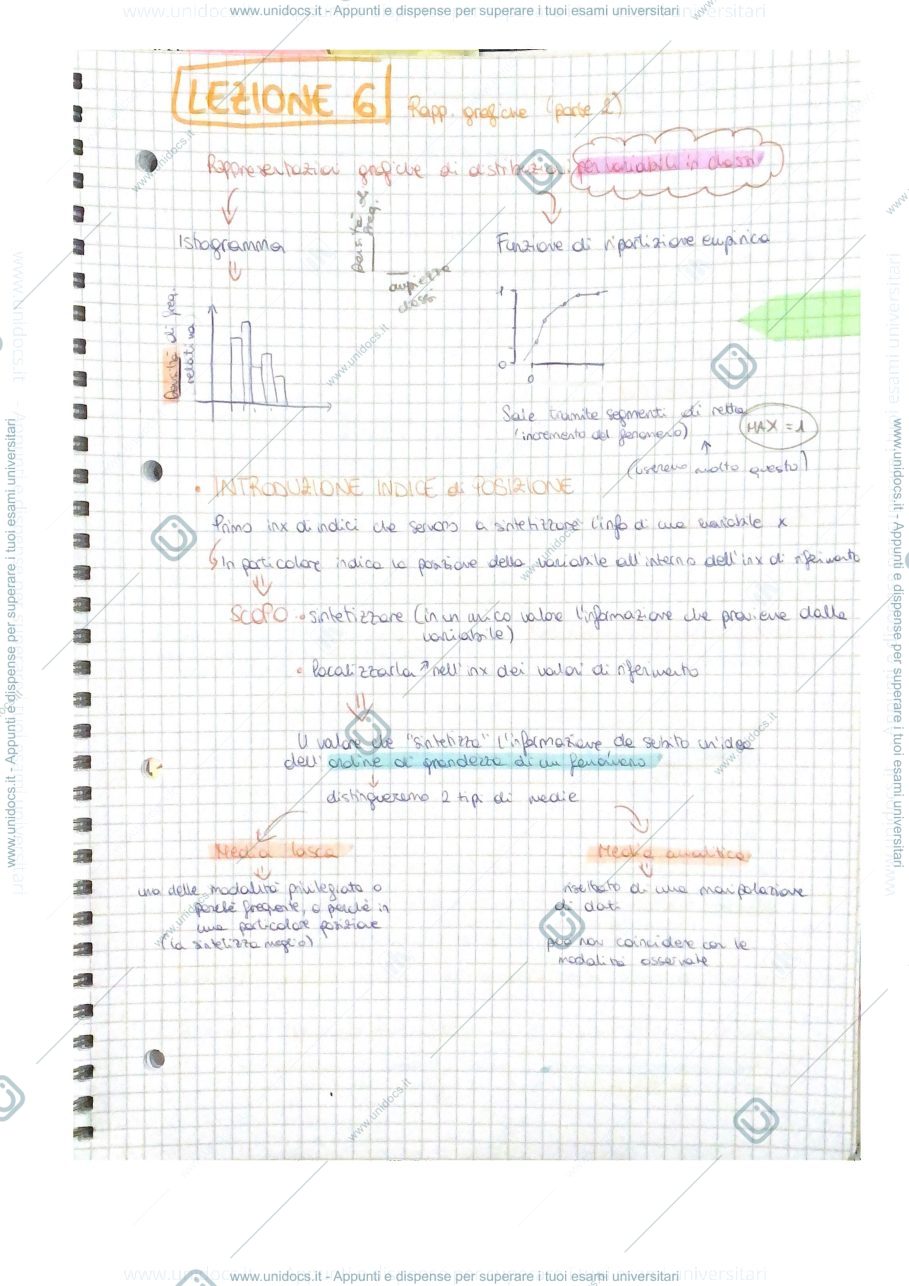 www.unidocs.it - Appunti e dispense per superare i tuoi esami universitari
LEZIONE 6 Rapp. grafiche (parte 2)
Rappresentazioni grafiche di distribuzioni per variabili in classi
Istogramma
Densità di freq.
ampiezza classi
Funzione di ripartizione empirica
Densità di freq. relativa
1
0
0
Sale tramite segmenti di retta
(incremento del fenomeno)
MAX = 1
(useremo molto questo)
• INTRODUZIONE INDICE di POSIZIONE
Primo inx di indici che servono a sintetizzare l'info di una variabile x
In particolare indica la posizione della variabile all'interno dell'inx di riferimento
SCOPO • sintetizzare (in un unico valore l'informazione che proviene dalla
variabile)
• localizzarla nell'inx dei valori di riferimento
Il valore che "sintetizza" l'informazione da subito un'idea
dell'ordine di grandezza di un fenomeno
distingueremo 2 tipi di medie
Media lasca
una delle modalità privilegiata o
perché frequente, o perché in
una particolare posizione
(la sintetizza meglio)
Media analitica
risultato di una manipolazione
di dati
può non coincidere con le
modalità osservate
www.unidocs.it - Appunti e dispense per superare i tuoi esami universitari
www.unidocs.it - Appunti e dispense per superare i tuoi esami universitari
www.unidocs.it - Appunti e dispense per superare i tuoi esami universitari